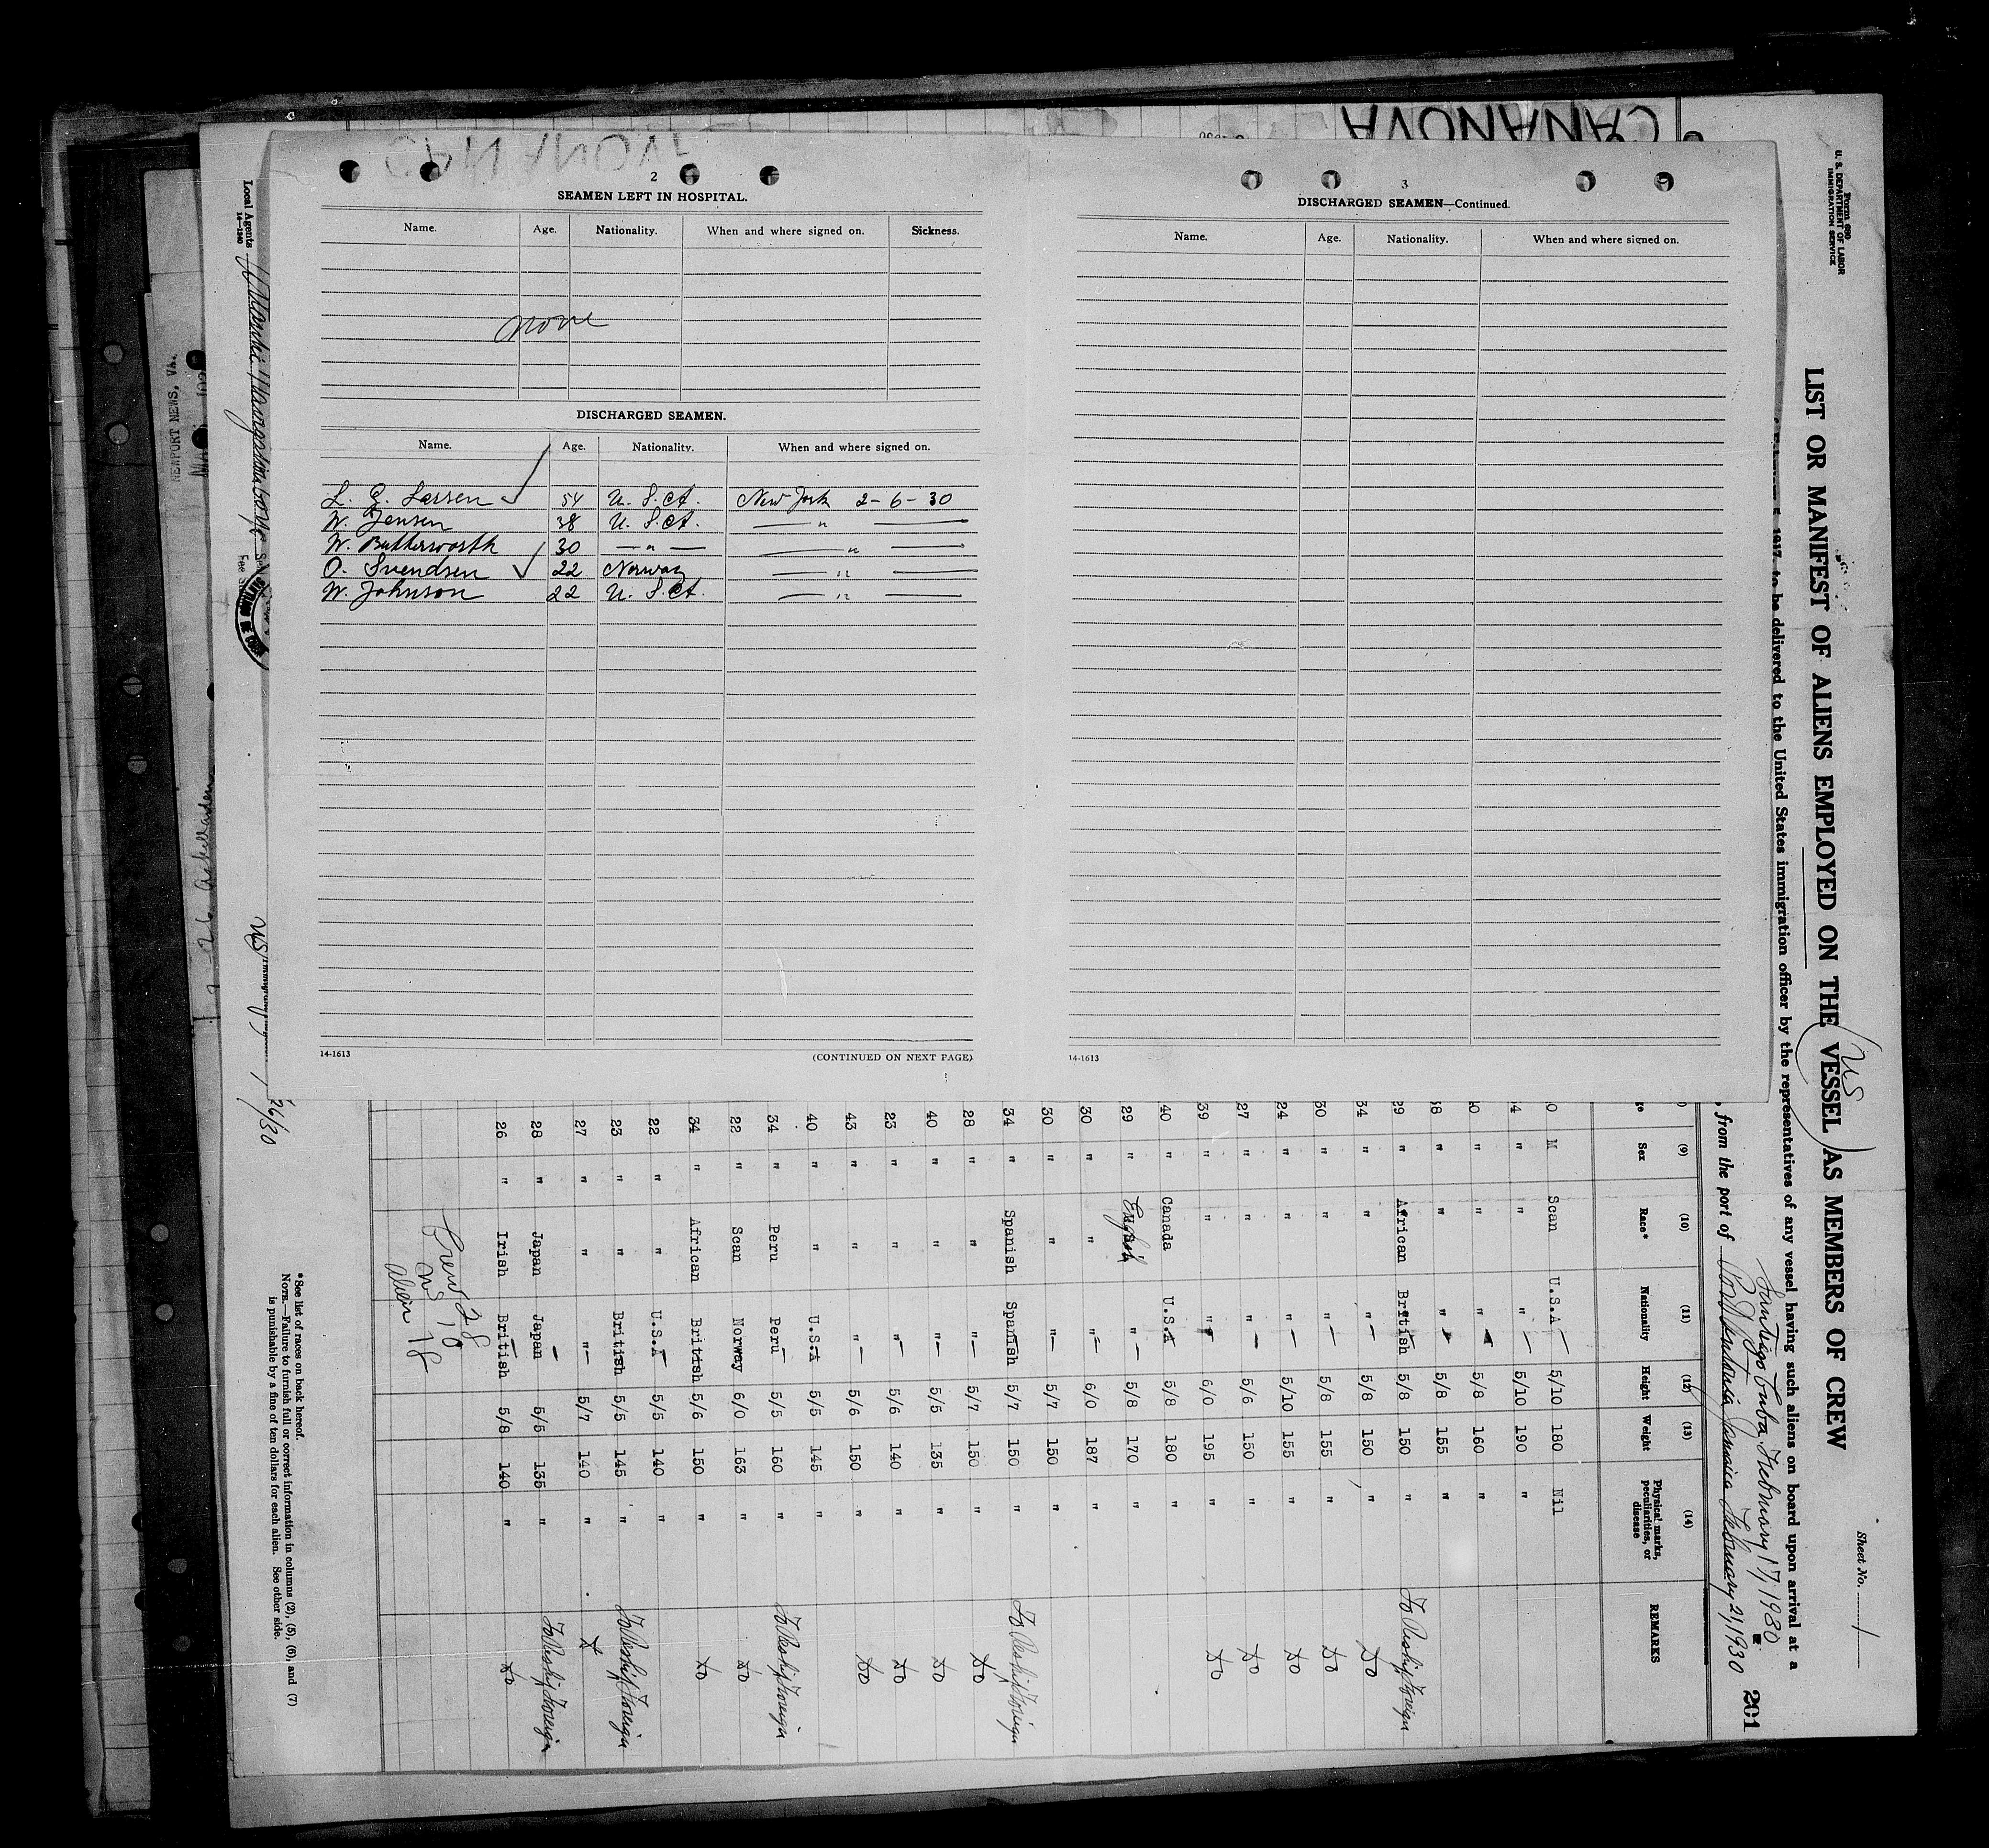 CANANOVA
2
SEAMEN LEFT IN HOSPITAL.
Name. Age. Nationality. When and where signed on. Sickness.
none
DISCHARGED SEAMEN.
Name. Age. Nationality. When and where signed on.
L. G. Larsen 54 U. S. A. New York 2-6-30
W. Jensen 38 U. S. A. — " —
W. Butterworth 30 — " — — " —
O. Svendsen 22 Norway — " —
W. Johnson 22 U. S. A. — " —
14-1613
(CONTINUED ON NEXT PAGE)
3
DISCHARGED SEAMEN—Continued.
Name. Age. Nationality. When and where signed on.
14-1613
Form 680
U. S. DEPARTMENT OF LABOR
IMMIGRATION SERVICE
Sheet No. 1
LIST OR MANIFEST OF ALIENS EMPLOYED ON THE VESSEL AS MEMBERS OF CREW
US
1917, to be delivered to the United States immigration officer by the representatives of any vessel having such aliens on board upon arrival at a
Santiago Cuba February 17, 1930
from the port of Port Antonio Jamaica February 21, 1930
201
(9) (10) (11) (12) (13) (14)
Sex Race* Nationality Height Weight Physical marks, peculiarities, or disease REMARKS
0 M Scan U.S.A — 5/10 180 Nil
4 " " " — 5/10 190 "
40 " " " 5/8 160 "
38 " " " 5/8 155 "
29 " African British 5/8 150 " To Reship Foreign
34 " " " — 5/8 150 " Do
30 " " " — 5/8 155 " Do
24 " " " — 5/10 155 " Do
27 " " " — 5/6 150 " Do
39 " " " 6/0 195 " Do
40 " Canada U.S.A 5/8 180 "
29 " English " — 5/8 170 "
30 " " " — 6/0 187 "
30 " " " — 5/7 150 "
34 " Spanish Spanish 5/7 150 " To Reship Foreign
28 " " " — 5/7 150 " Do
40 " " " — 5/5 135 " Do
23 " " " — 5/6 140 " Do
43 " " " — 5/6 150 " Do
40 " " U.S.A 5/5 145 "
34 " Peru Peru 5/5 160 " To Reship Foreign
22 " Scan Norway 6/0 163 " Do
34 " African British 5/6 150 " Do
22 " " U.S.A 5/5 140 "
23 " " British 5/5 145 " To Reship Foreign
27 " " " — 5/7 140 "
28 " Japan Japan 5/5 135 " To Reship Foreign
26 " Irish British 5/8 140 " Do
Crew 28
US 10
Alien 18
*See list of races on back hereof.
NOTE.—Failure to furnish full or correct information in columns (2), (5), (6), and (7)
is punishable by a fine of ten dollars for each alien. See other side.
Local Agents
14-1240
NEWPORT NEWS, VA.